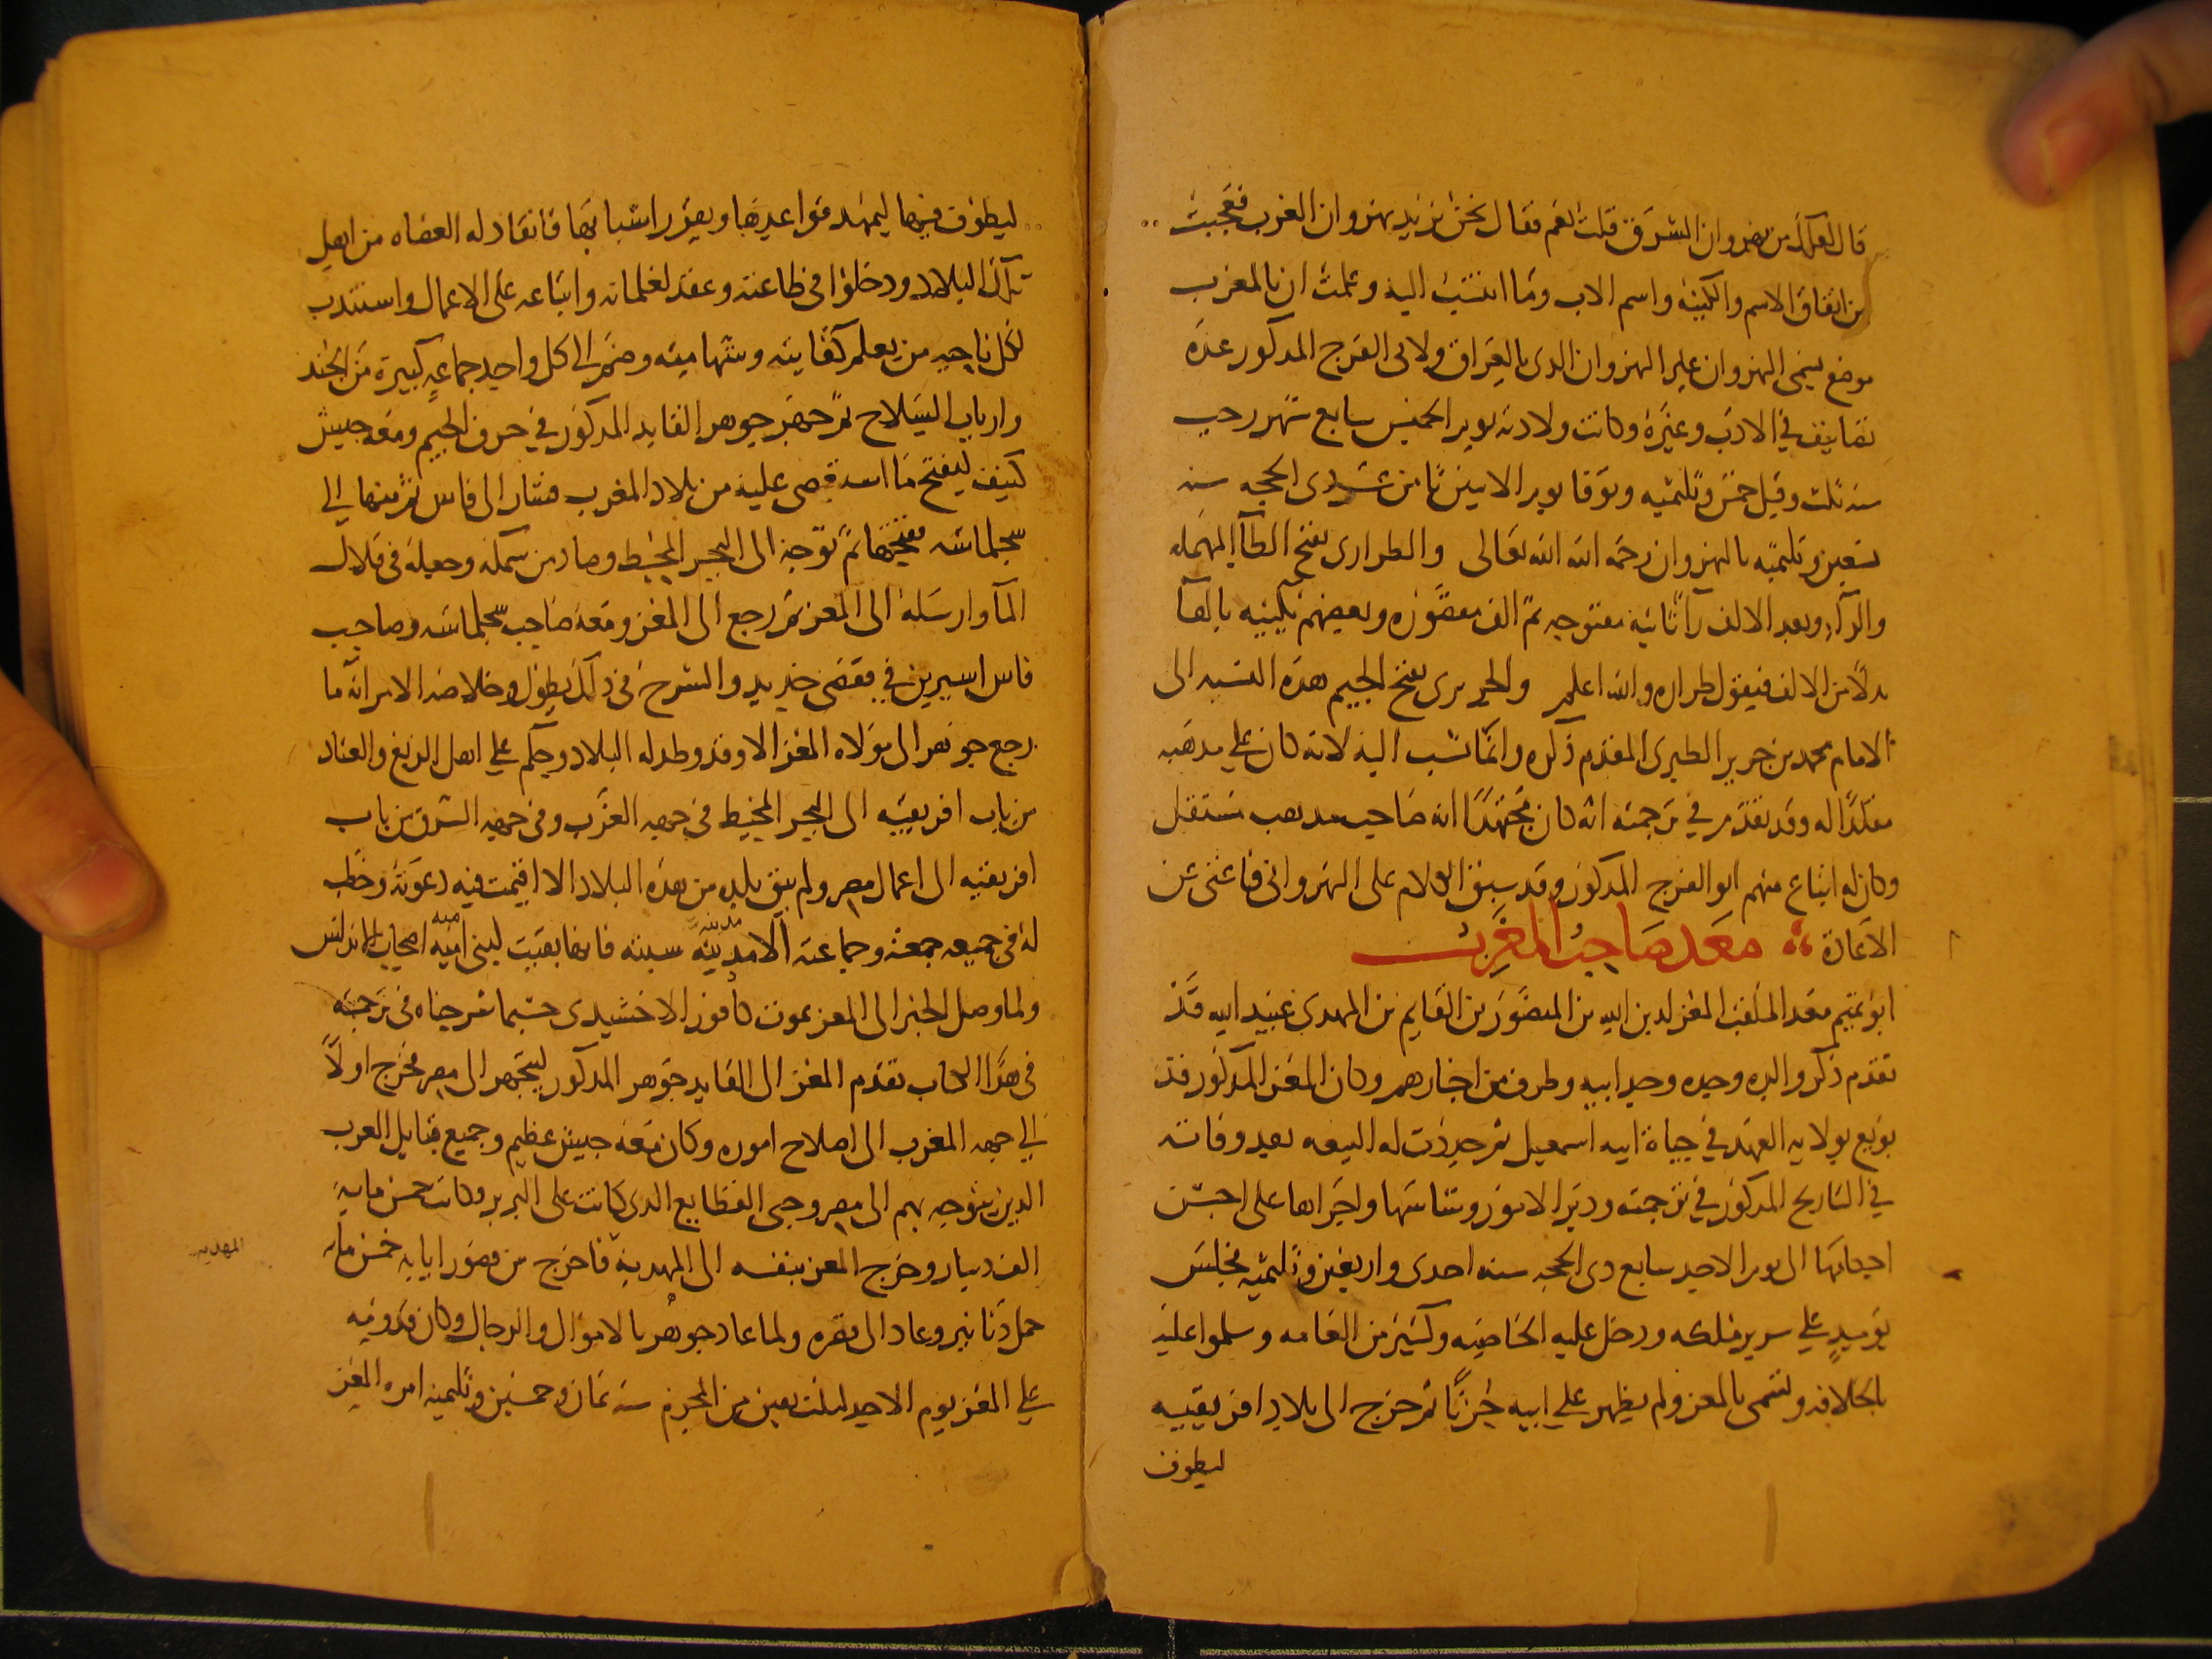 قال لعلك من نهروان الشرق قلت نعم فقال نحن نريد نهروان الغرب فعجبت
من اتفاق الاسم والكنية واسم الاب وما انتسب اليه وعلمت ان بالمغرب
موضع يسمى النهروان غير النهروان الذي بالعراق ولابي الفرج المذكور عدة
تصانيف في الادب وغيره وكانت ولادته يوم الخميس سابع شهر رجب
سنه ثلث وقيل خمس وثلثميه وتوفا يوم الاثنين ثامن عشر ذي الحجه سنه
تسعين وثلثميه بالنهروان رحمه الله الله تعالى والطراري بفتح الطآ المهمله
والرآ وبعد الالف رآ ثانية مفتوحه ثم الف مقصوره وبعضهم يكتبه بالهآ
بدلا من الالف فيقول طراره والله اعلم والجريري بفتح الجيم هذه النسبه الى
الامام محمد بن جرير الطبري المقدم ذكره وانما نسب اليه لانه كان على مذهبه
مقلدا له وقد تقدم في ترجمته انه كان مجتهدا انه صاحب مذهب مستقل
وكان له اتباع منهم ابو الفرج المذكور وقد سبق الكلام على النهرواني فاغنى عن
الاعادة معد صاحب المغرب
ابو تميم معد الملقب المعز لدين الله بن المنصور بن القايم بن المهدي عبيد الله قد
تقدم ذكر والده وجده وجد ابيه وطرف من اخبارهم وكان المعز المذكور قد
بويع بولايه العهد في حياة ابيه اسمعيل ثم جددت له البيعه بعد وفاته
في التاريخ المذكور في ترجمته ودبر الامور وساسها واجراها على احسن
احكامها الى يوم الاحد سابع ذي الحجه سنه احدى واربعين وثلثميه فجلس
يوميذ على سرير ملكه ودخل عليه الخاصه وكثير من العامه وسلموا عليه
بالخلافه وتسمى بالمعز ولم يظهر على ابيه حزنا ثم خرج الى بلاد افريقيه
ليطوف
ليطوف فيها ليمهد قواعدها ويقرر اسبابها فانقاد له العصاه من اهل
تلك البلاد ودخلوا في طاعته وعقد لغلمانه واتباعه على الاعمال واستندب
لكل ناحيه من يعلم كفايته وشهامته وضم الى كل واحد جماعه كبيرة من الجند
وارباب السلاح ثم جهز جوهر القايد المذكور في حرف الجيم ومعه جيش
كثيف ليفتح ما استعصى عليه من بلاد المغرب فسار الى فاس ثم منها الى
سجلماسه ففتحها ثم توجه الى البحر المحيط وصاد من سمكه وجعله في قلال
المآ وارسله الى المعز ثم رجع الى المعز ومعه صاحب سجلماسه وصاحب
فاس اسيرين في قفصى حديد والشرح في ذلك يطول وخلاصه الامر انه ما
رجع جوهر الى مولاه المعز الا وقد وطد له البلاد وحكم على اهل الزيغ والعناد
من باب افريقيه الى البحر المحيط في جهه الغرب وفي جهه الشرق من باب
افريقيه الى اعمال مصر ولم يبق بلد من هذه البلاد الا اقيمت فيه دعوته وخطب
له في جميعه جمعته وجماعته الا مدينة مدينه سبته فانها بقيت لبني امية اميه اصحاب الاندلس
ولما وصل الخبر الى المعز بموت كافور الاخشيدي حسبما شرحناه في ترجمته
في هذا الكتاب تقدم المعز الى القايد جوهر المذكور ليتجهز الى مصر فخرج اولا
الى جهه المغرب الى اصلاح اموره وكان معه جيش عظيم وجميع قبايل العرب
الذين يتوجه بهم الى مصر وجبى القطايع الذي كانت على البربر وكانت خمس مايه
الف دينار وخرج المعز بنفسه الى المهدية فاخرج من قصور ابايه خمس مايه
المهديه
حمل دنانير وعاد الى قصره ولما عاد جوهر بالاموال والرجال وكان قدومه
على المعز يوم الاحد لثلث بقين من المحرم سنه ثمان وخمسين وثلثميه امره المعز